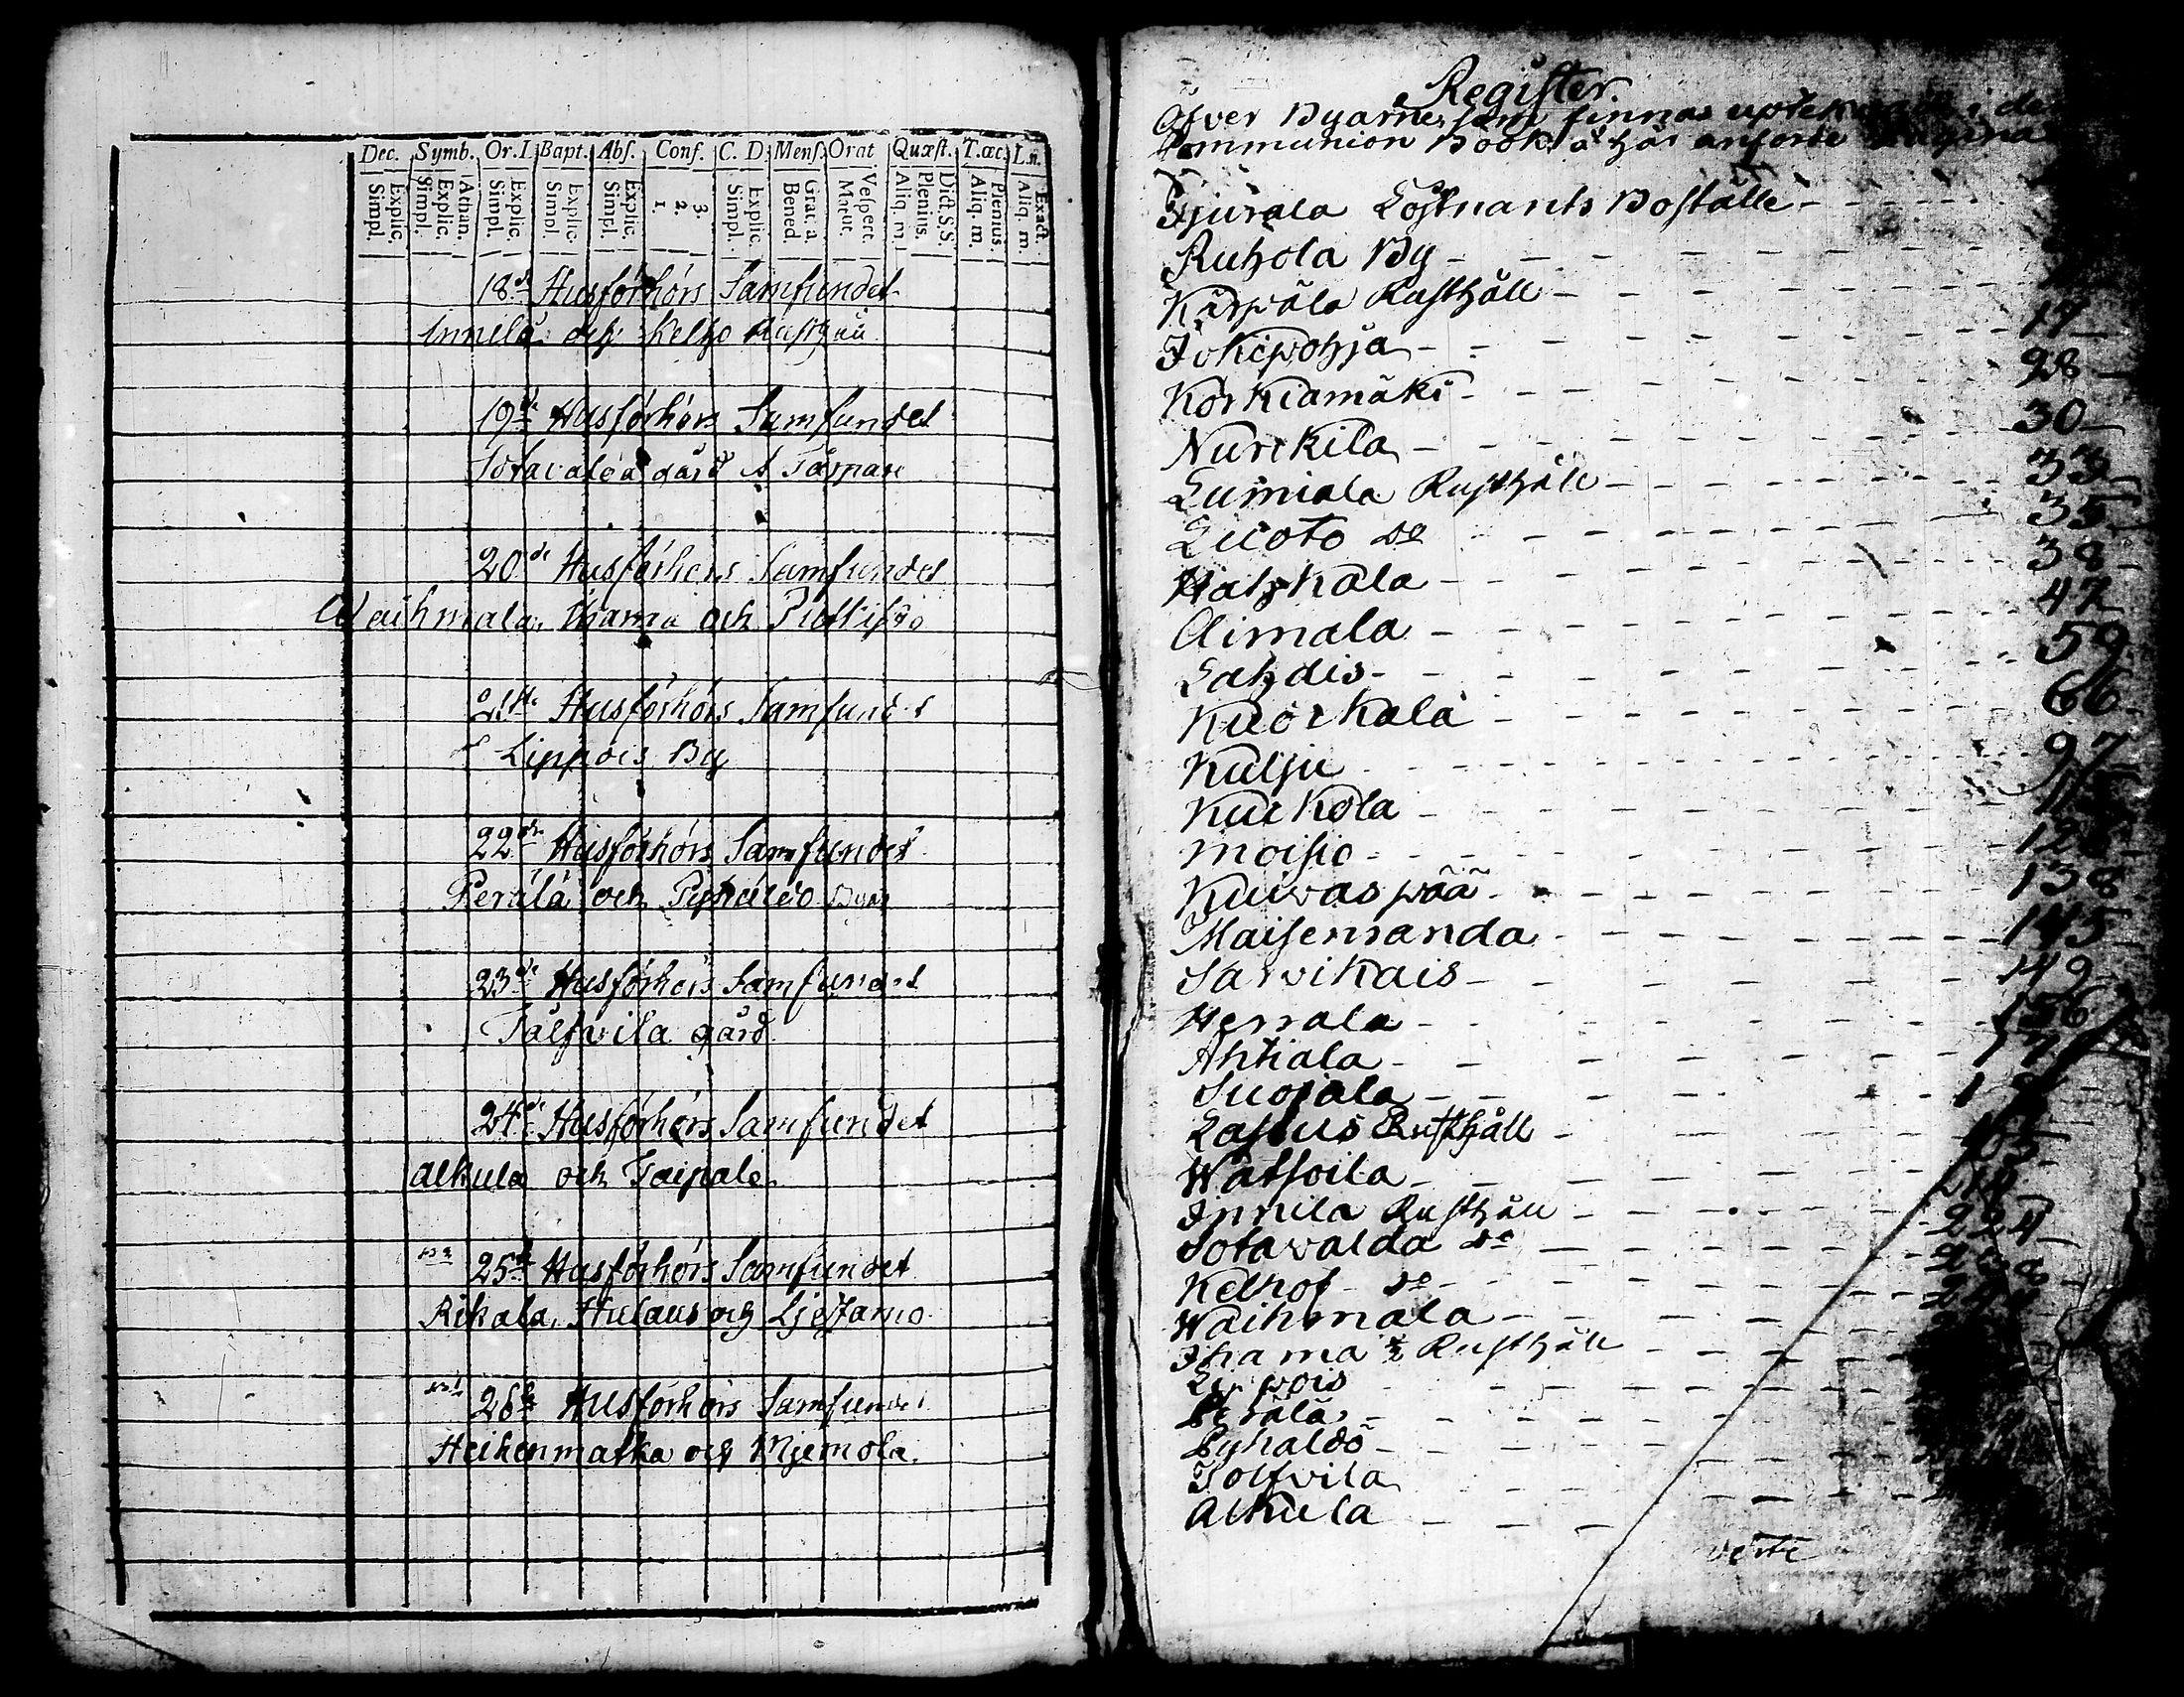 Dec. Symb. Or.D. Bapt. Abs. Conf. C. D. Mens. Orat Quæst. T.æc. L.n.
Explic. Simpl. Athan. Explic. Simpl. Explic. Simpl. Explic. Simpl. Explic. Simpl. 3. 2. 1. Explic. Simpl. Grat. a. Bened. Vespert. Matut. Dict. S.S. Plenius. Aliq. m. Plenius. Aliq. m. Exact. Aliq. m.
18de Husförhörs Samfundet
Innila och Kelho Rusthåll
19de Husförhörs Samfundet
Sotavalda gård
20de Husförhörs Samfundet
Waihmala, Ihama och
21sta Husförhörs Samfundet
Lippois By
22dra Husförhörs Samfundet
Perälä och Byar
23de Husförhörs Samfundet
Tålfvila gård
24de Husförhörs Samfundet
Alkula och Taipale
25te Husförhörs Samfundet
Rikala, Hulaus och Ljestamo
26te Husförhörs Samfundet
Heikenmatka och Mjemola.
Register.
Öfver Byarne, som finnas i
Communion Book, å här anförde Pagina
Tjurala Löjtnants Boställe
Ruhola By
Kärpälä Rusthåll
Jokipohja 17
Korkiamäki 28
Nurckila 30
Lumiala Rusthåll 33
Lucoto do 35
Hatzkala 38
Aimala 47
Lahdis 59
Kuorkala 66
Kulju 97
Kuckola
Moisio
Kuivaspää 138
Maisenranda 145
Sarvikais 149
Herrala 156
Ahtiala
Suojala
Laskus Rusthåll
Wattoila
Innila Rusthåll 224
Sotavalda do
Kelhof do
Waihmala
Ihama ½ Rusthåll
Lippois
Perälä
Pyhäldö
Tolfvila
Alkula
verte